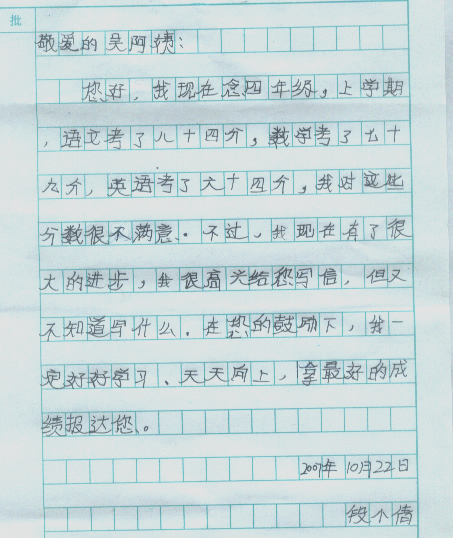 批
敬爱的吴阿姨：
您好，我现在念四年级，上学期
，语文考了八十四分，数学考了七十
九分，英语考了六十四分，我对这些
分数很不满意。不过，我现在有了很
大的进步，我很高兴给您写信，但又
不知道写什么．在您的鼓励下，我一
定好好学习、天天向上，拿最好的成
绩报达您。
2007年10月22日
段小倩